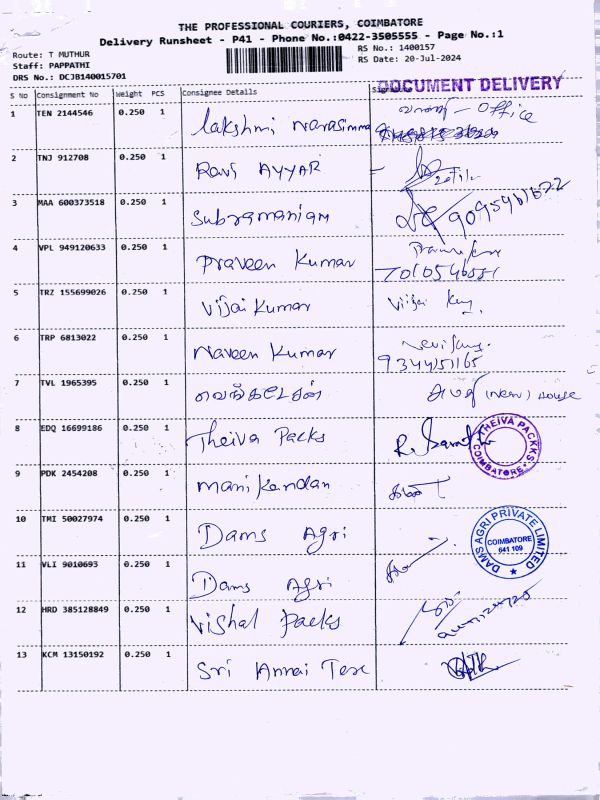 THE PROFESSIONAL COURIERS, COIMBATORE
Delivery Runsheet - P41 - Phone No.:0422-3505555 - Page No.:1
Route: T MUTHUR
Staff: PAPPATHI
DRS No.: DCJB140015701
RS No.: 1400157
RS Date: 20-Jul-2024
DOCUMENT DELIVERY
S No Consignment No Weight PCS Consignee Details
1 TEN 2144546 0.250 1 Lakshmi Narasimma - Office
2 TNJ 912708 0.250 1 Ravi AYYAR
3 MAA 600373518 0.250 1 Subramaniam
4 VPL 949120633 0.250 1 Praveen Kumar
5 TRZ 155699026 0.250 1 Vijai Kumar
6 TRP 6813022 0.250 1 Naveen Kumar
9344151165
7 TVL 1965395 0.250 1 வெங்கடேசன் (New) House
8 EDQ 16699186 0.250 1 Theiva Packs
THEIVA PACKKS
COIMBATORE
9 PDK 2454208 0.250 1 Manikandan
10 TMI 50027974 0.250 1 Dams Agri
DAMS AGRI PRIVATE LIMITED
COIMBATORE
641 109
11 VLI 9010693 0.250 1 Dams Agri
12 HRD 385128849 0.250 1 Vishal Packs
13 KCM 13150192 0.250 1 Sri Annai Tex